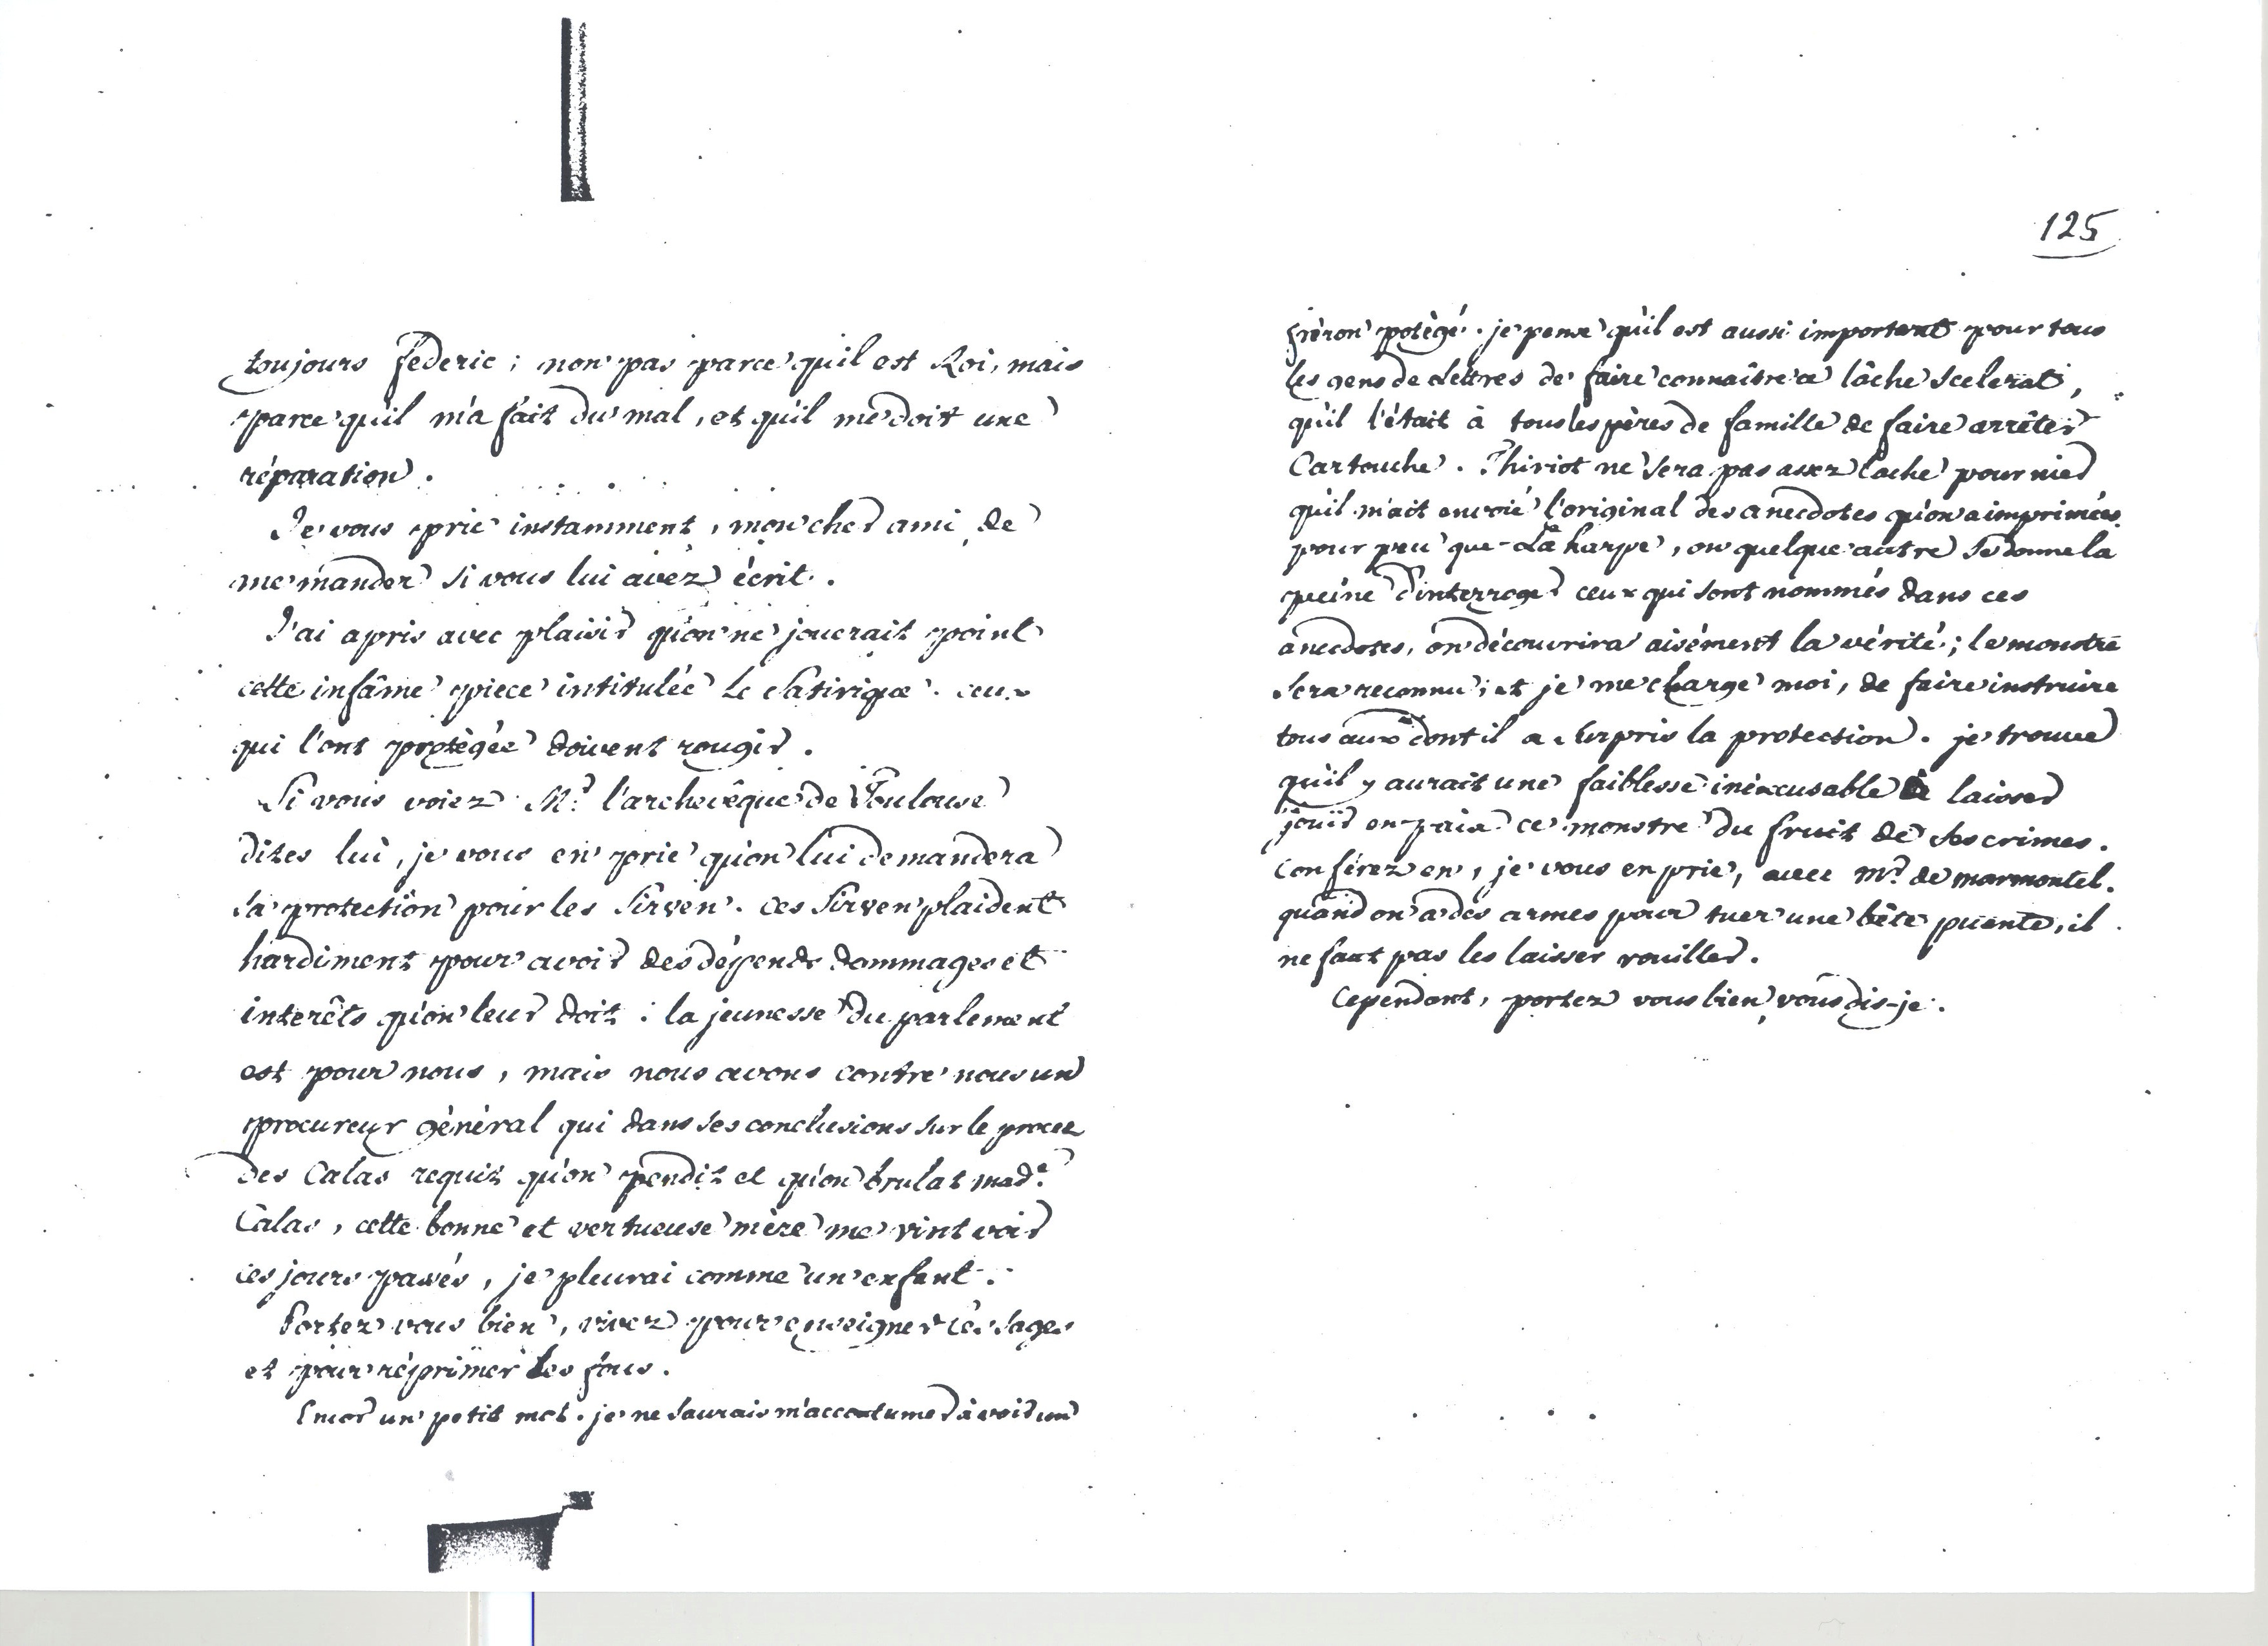 toujours Féderic ; non pas parce qu'il est Roi, mais
parce qu'il m'a fait du mal, et qu'il me doit une
réparation.
Je vous prie instamment, mon cher ami, de
me mander si vous lui avez écrit.
J'ai apris avec plaisir qu'on ne jouerait point
cette infâme piece intitulée Le Satirique. ceux
qui l'ont protègée doivent rougir.
Si vous voiez Mr. l'archevêque de Toulouse
dites lui, je vous en prie qu'on lui demandera
sa protection pour les Sirven. ces Sirven plaident
hardiment pour avoir des dépends dommages et
interêts qu'on leur doit : la jeunesse du parlement
est pour nous, mais nous avons contre nous un
procureur général qui dans ses conclusions sur le procez
des Calas requit qu'on pendit et qu'on brulat made.
Calas, cette bonne et vertueuse mère me vint voir
ces jours passés, je pleurai comme un enfant.
Portez vous bien, vivez pour enseigner les sages
et pour réprimer les fous.
Encor un petit mot. je ne saurais m'accoutumer à voir un
125
fréron potègé. je pense qu'il est aussi important pour tous
les gens de Lettres de faire connaître ce lâche scelerat,
qu'il l'était à tous les pères de famille de faire arrêter
Cartouche. Thiriot ne sera pas assez lache pour nier
qu'il m'ait envoié l'original des anecdotes qu'on a imprimées.
pour peu que La harpe, ou quelque autre se donne la
peine d'interroger ceux qui sont nommés dans ces
anecdotes, on découvrira aisément la vérité ; le monstre
sera reconnu ; et je me charge moi, de faire instruire
tous ceux dont il a surpris la protection. je trouve
qu'il y aurait une faiblesse inéxcusable à laisser
jouïr en paix ce monstre du fruit de ses crimes.
Conférez en, je vous en prie, avec mr. de marmontel.
quand on a des armes pour tuer une bête puante, il
ne faut pas les laisser rouiller.
Cependant, portez vous bien, vous dis-je.